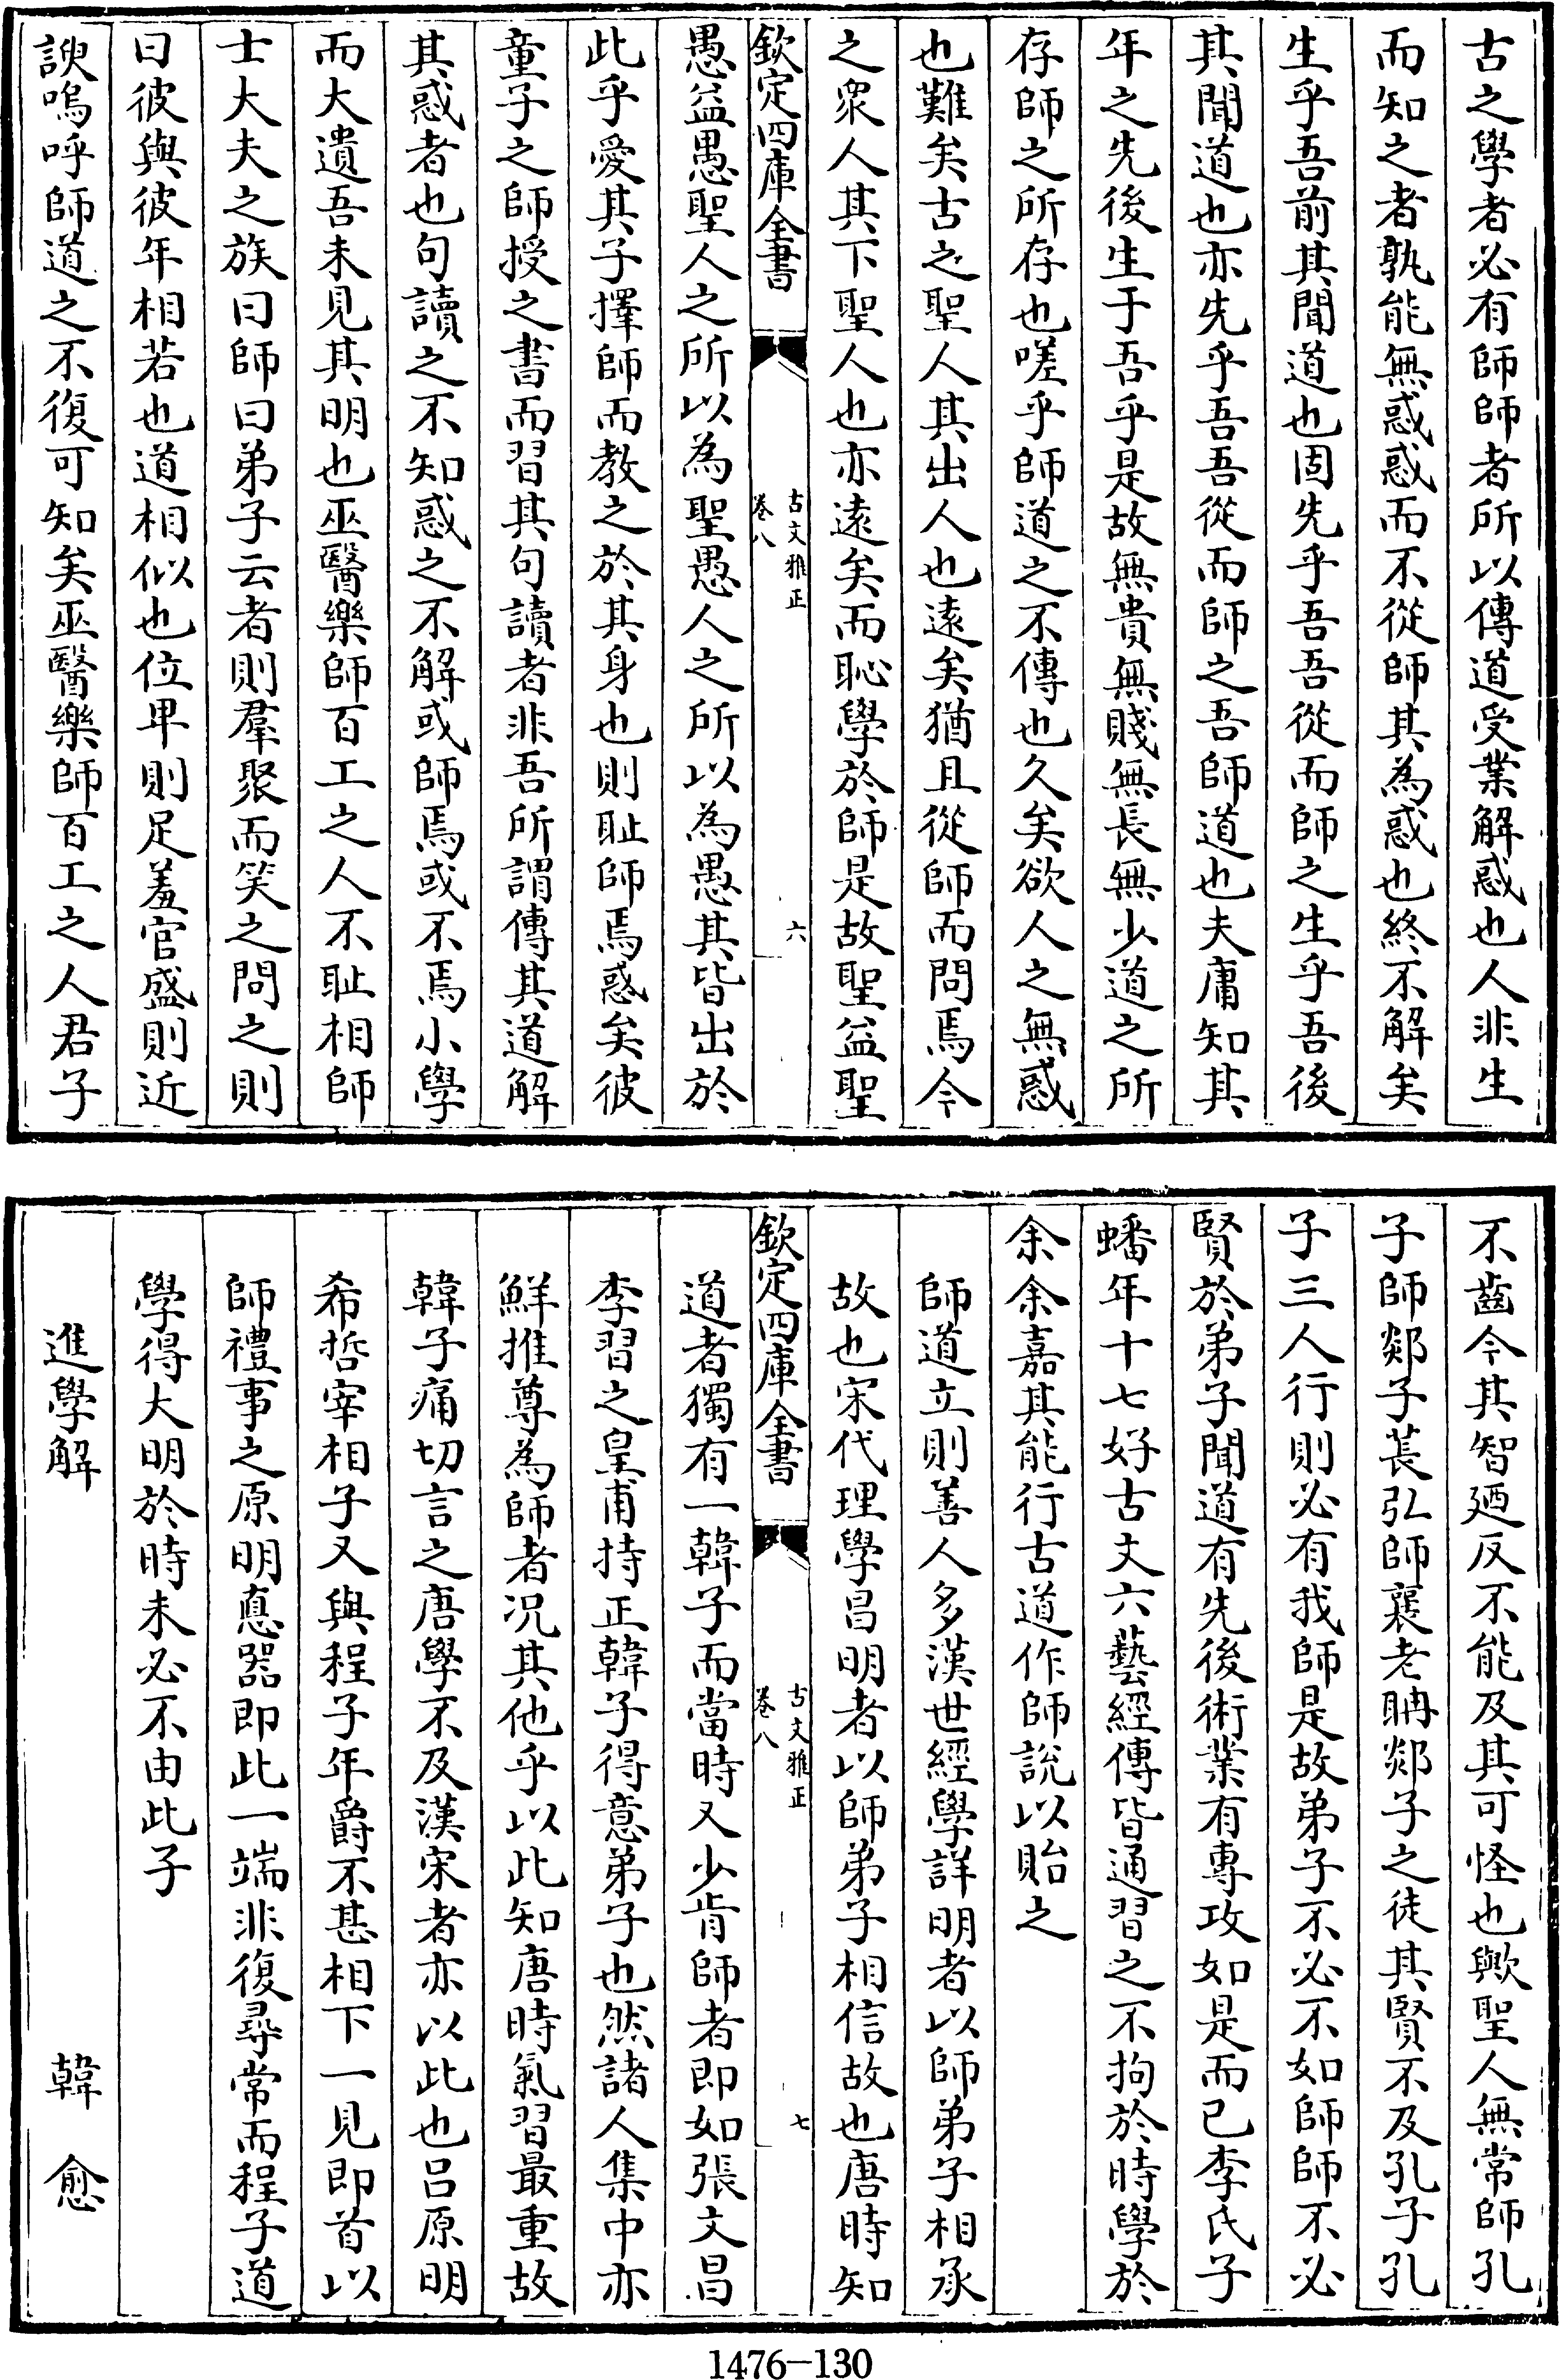 古之學者必有師師者所以傳道受業解惑也人非生
而知之者孰能無惑惑而不從師其為惑也終不解矣
生乎吾前其聞道也固先乎吾吾從而師之生乎吾後
其聞道也亦先乎吾吾從而師之吾師道也夫庸知其
年之先後生于吾乎是故無貴無賤無長無少道之所
存師之所存也嗟乎師道之不傳也久矣欲人之無惑
也難矣古之聖人其出人也遠矣猶且從師而問焉今
之衆人其下聖人也亦遠矣而恥學於師是故聖益聖
欽定四庫全書
古文雅正
卷八
六
愚益愚聖人之所以為聖愚人之所以為愚其皆出於
此乎愛其子擇師而教之於其身也則耻師焉惑矣彼
童子之師授之書而習其句讀者非吾所謂傳其道解
其惑者也句讀之不知惑之不解或師焉或不焉小學
而大遺吾未見其明也巫醫樂師百工之人不耻相師
士大夫之族曰師曰弟子云者則羣聚而笑之問之則
曰彼與彼年相若也道相似也位卑則足羞官盛則近
諛嗚呼師道之不復可知矣巫醫樂師百工之人君子
不齒今其智廼反不能及其可怪也歟聖人無常師孔
子師郯子萇弘師襄老聃郯子之徒其賢不及孔子孔
子三人行則必有我師是故弟子不必不如師師不必
賢於弟子聞道有先後術業有專攻如是而已李氏子
蟠年十七好古文六藝經傳皆通習之不拘於時學於
余余嘉其能行古道作師說以貽之
師道立則善人多漢世經學詳明者以師弟子相承
故也宋代理學昌明者以師弟子相信故也唐時知
欽定四庫全書
古文雅正
卷八
七
道者獨有一韓子而當時又少肯師者即如張文昌
李習之皇甫持正韓子得意弟子也然諸人集中亦
鮮推尊為師者况其他乎以此知唐時氣習最重故
韓子痛切言之唐學不及漢宋者亦以此也呂原明
希哲宰相子又與程子年爵不甚相下一見即首以
師禮事之原明悳器即此一端非復尋常而程子道
學得大明於時未必不由此子
進學解
韓愈
1476-130